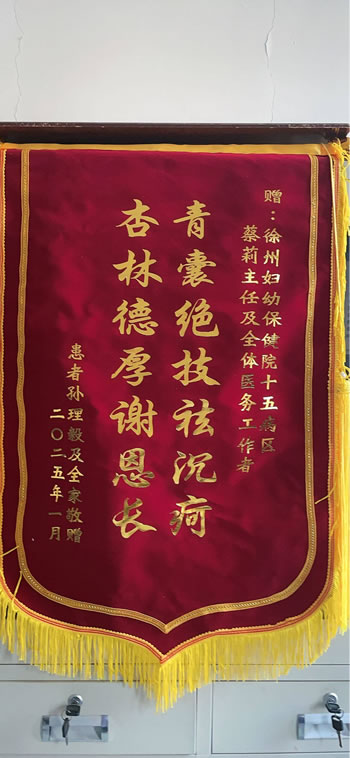 赠：徐州妇幼保健院十五病区
蔡莉主任及全体医务工作者
青囊绝技祛沉疴
杏林德厚谢恩长
患者孙理毅及全家敬赠
二〇二五年一月